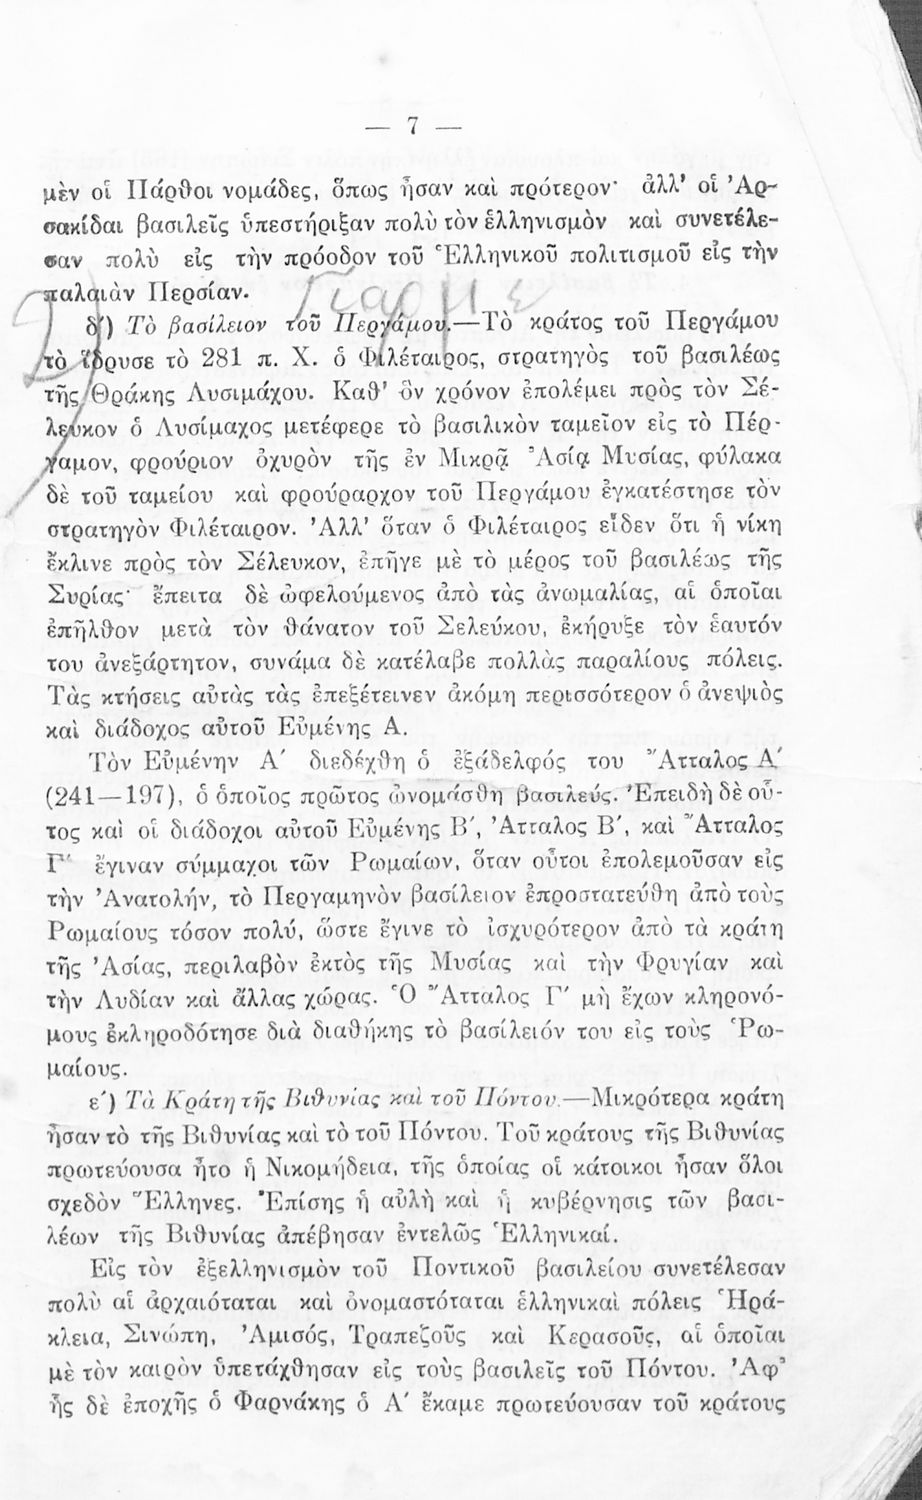 — 7 —
μὲν οἱ Πάρθοι νομάδες, ὅπως ἦσαν καὶ πρότερον· ἀλλ' οἱ Ἀρ-
σακίδαι βασιλεῖς ὑπεστήριξαν πολὺ τὸν ἑλληνισμὸν καὶ συνετέλε-
σαν πολὺ εἰς τὴν πρόοδον τοῦ Ἑλληνικοῦ πολιτισμοῦ εἰς τὴν
παλαιὰν Περσίαν.
δ') Τὸ βασίλειον τοῦ Περγάμου.—Τὸ κράτος τοῦ Περγάμου
τὸ ἵδρυσε τὸ 281 π. Χ. ὁ Φιλέταιρος, στρατηγὸς τοῦ βασιλέως
τῆς Θράκης Λυσιμάχου. Καθ' ὃν χρόνον ἐπολέμει πρὸς τὸν Σέ-
λευκον ὁ Λυσίμαχος μετέφερε τὸ βασιλικὸν ταμεῖον εἰς τὸ Πέρ-
γαμον, φρούριον ὀχυρὸν τῆς ἐν Μικρᾷ Ἀσίᾳ Μυσίας, φύλακα
δὲ τοῦ ταμείου καὶ φρούραρχον τοῦ Περγάμου ἐγκατέστησε τὸν
στρατηγὸν Φιλέταιρον. Ἀλλ' ὅταν ὁ Φιλέταιρος εἶδεν ὅτι ἡ νίκη
ἔκλινε πρὸς τὸν Σέλευκον, ἐπῆγε μὲ τὸ μέρος τοῦ βασιλέως τῆς
Συρίας· ἔπειτα δὲ ὠφελούμενος ἀπὸ τὰς ἀνωμαλίας, αἱ ὁποῖαι
ἐπῆλθον μετὰ τὸν θάνατον τοῦ Σελεύκου, ἐκήρυξε τὸν ἑαυτόν
του ἀνεξάρτητον, συνάμα δὲ κατέλαβε πολλὰς παραλίους πόλεις.
Τὰς κτήσεις αὐτὰς τὰς ἐπεξέτεινεν ἀκόμη περισσότερον ὁ ἀνεψιὸς
καὶ διάδοχος αὐτοῦ Εὐμένης Α.
Τὸν Εὐμένην Α' διεδέχθη ὁ ἐξάδελφός του Ἄτταλος Α'
(241—197), ὁ ὁποῖος πρῶτος ὠνομάσθη βασιλεύς. Ἐπειδὴ δὲ οὗ-
τος καὶ οἱ διάδοχοι αὐτοῦ Εὐμένης Β', Ἄτταλος Β', καὶ Ἄτταλος
Γ' ἔγιναν σύμμαχοι τῶν Ρωμαίων, ὅταν οὗτοι ἐπολεμοῦσαν εἰς
τὴν Ἀνατολήν, τὸ Περγαμηνὸν βασίλειον ἐπροστατεύθη ἀπὸ τοὺς
Ρωμαίους τόσον πολύ, ὥστε ἔγινε τὸ ἰσχυρότερον ἀπὸ τὰ κράτη
τῆς Ἀσίας, περιλαβὸν ἐκτὸς τῆς Μυσίας καὶ τὴν Φρυγίαν καὶ
τὴν Λυδίαν καὶ ἄλλας χώρας. Ὁ Ἄτταλος Γ' μὴ ἔχων κληρονό-
μους ἐκληροδότησε διὰ διαθήκης τὸ βασίλειόν του εἰς τοὺς Ῥω-
μαίους.
ε') Τὰ Κράτη τῆς Βιθυνίας καὶ τοῦ Πόντου.—Μικρότερα κράτη
ἦσαν τὸ τῆς Βιθυνίας καὶ τὸ τοῦ Πόντου. Τοῦ κράτους τῆς Βιθυνίας
πρωτεύουσα ἦτο ἡ Νικομήδεια, τῆς ὁποίας οἱ κάτοικοι ἦσαν ὅλοι
σχεδὸν Ἕλληνες. Ἐπίσης ἡ αὐλὴ καὶ ἡ κυβέρνησις τῶν βασι-
λέων τῆς Βιθυνίας ἀπέβησαν ἐντελῶς Ἑλληνικαί.
Εἰς τὸν ἐξελληνισμὸν τοῦ Ποντικοῦ βασιλείου συνετέλεσαν
πολὺ αἱ ἀρχαιόταται καὶ ὀνομαστόταται ἑλληνικαὶ πόλεις Ἡρά-
κλεια, Σινώπη, Ἀμισός, Τραπεζοῦς καὶ Κερασοῦς, αἱ ὁποῖαι
μὲ τὸν καιρὸν ὑπετάχθησαν εἰς τοὺς βασιλεῖς τοῦ Πόντου. Ἀφ'
ἧς δὲ ἐποχῆς ὁ Φαρνάκης ὁ Α' ἔκαμε πρωτεύουσαν τοῦ κράτους